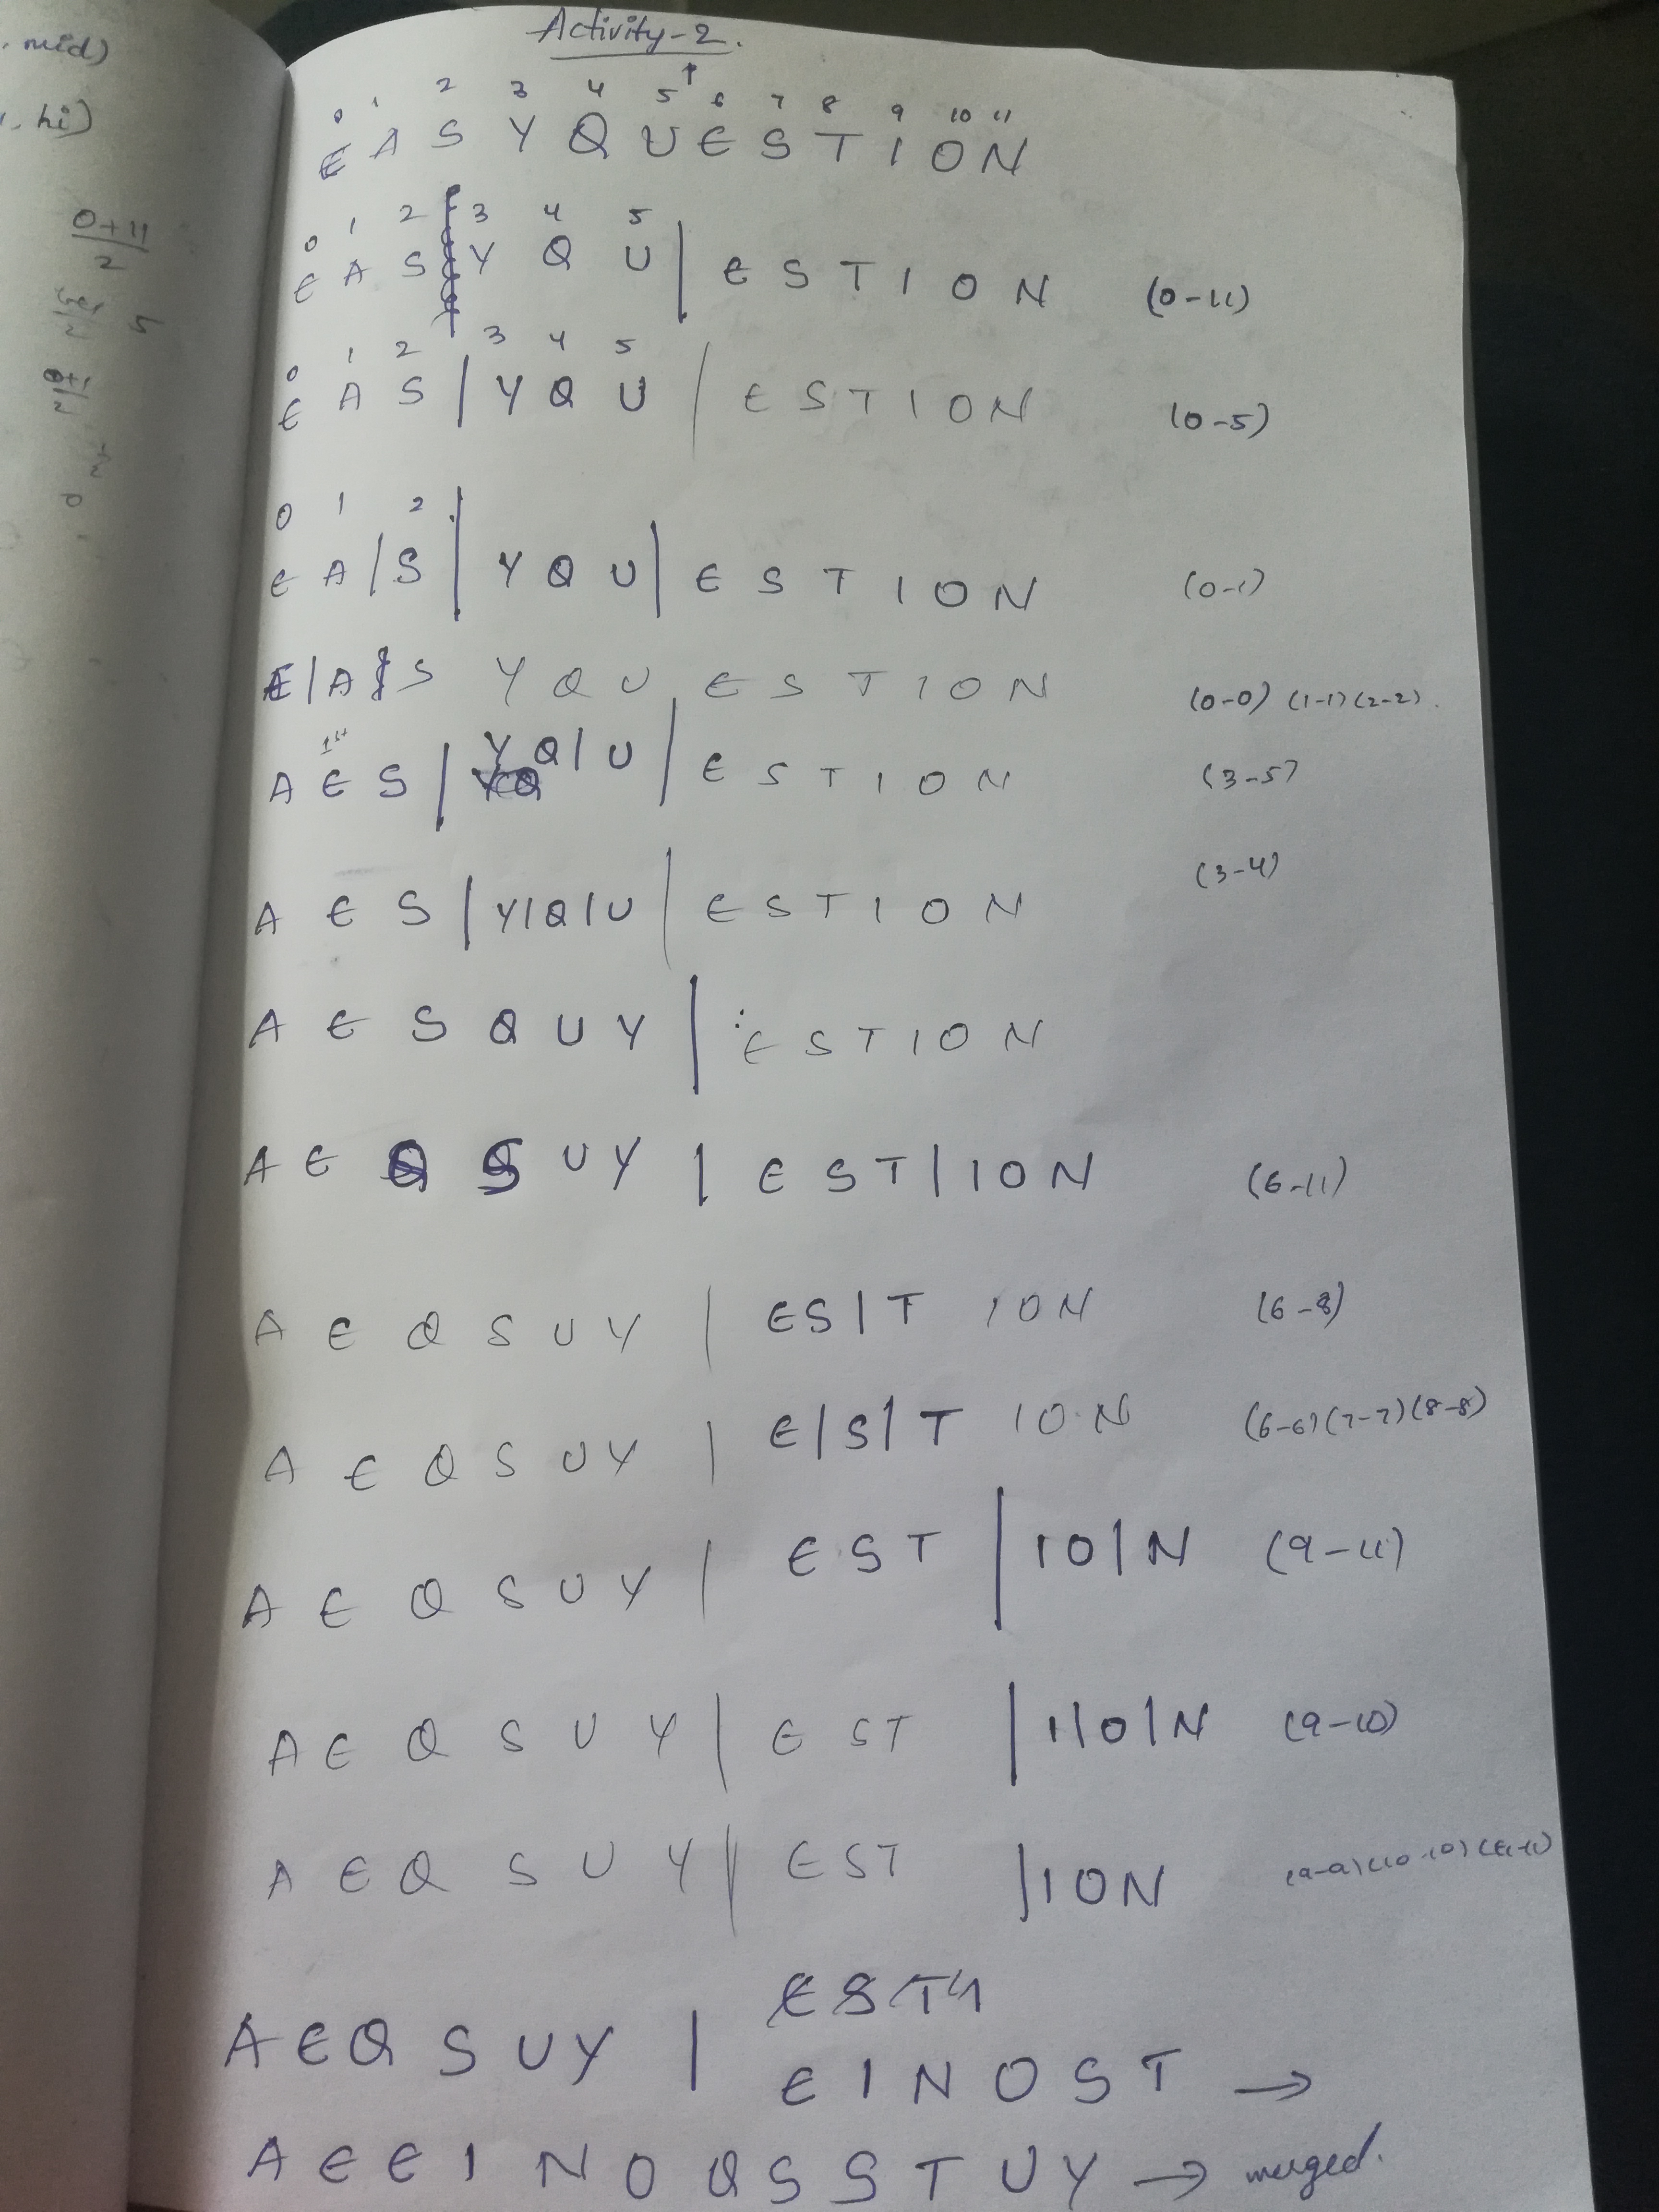 . mid)
, hi)
0+11
2
5
0
Activity-2.
↑
0 1 2 3 4 5 6 7 8 9 10 11
E A S Y Q U E S T I O N
0 1 2 3 4 5
E A S Y Q U | E S T I O N (0-11)
0 1 2 3 4 5
E A S | Y Q U | E S T I O N (0-5)
0 1 2
E A | S | Y Q U | E S T I O N (0-1)
E | A | S Y Q U E S T I O N (0-0) (1-1) (2-2).
1st
A E S | Y Q | U | E S T I O N (3-5)
A E S | Y | Q | U | E S T I O N (3-4)
A E S Q U Y | E S T I O N
A E Q S U Y | E S T | I O N (6-11)
A E Q S U Y | E S | T I O N (6-8)
A E Q S U Y | E | S | T I O N (6-6) (7-7) (8-8)
A E Q S U Y | E S T | I O | N (9-11)
A E Q S U Y | E S T | I | O | N (9-10)
A E Q S U Y | E S T | I O N (9-9) (10-10) (11-11)
E S T
A E Q S U Y | E I N O S T →
A E E I N O Q S S T U Y → merged.